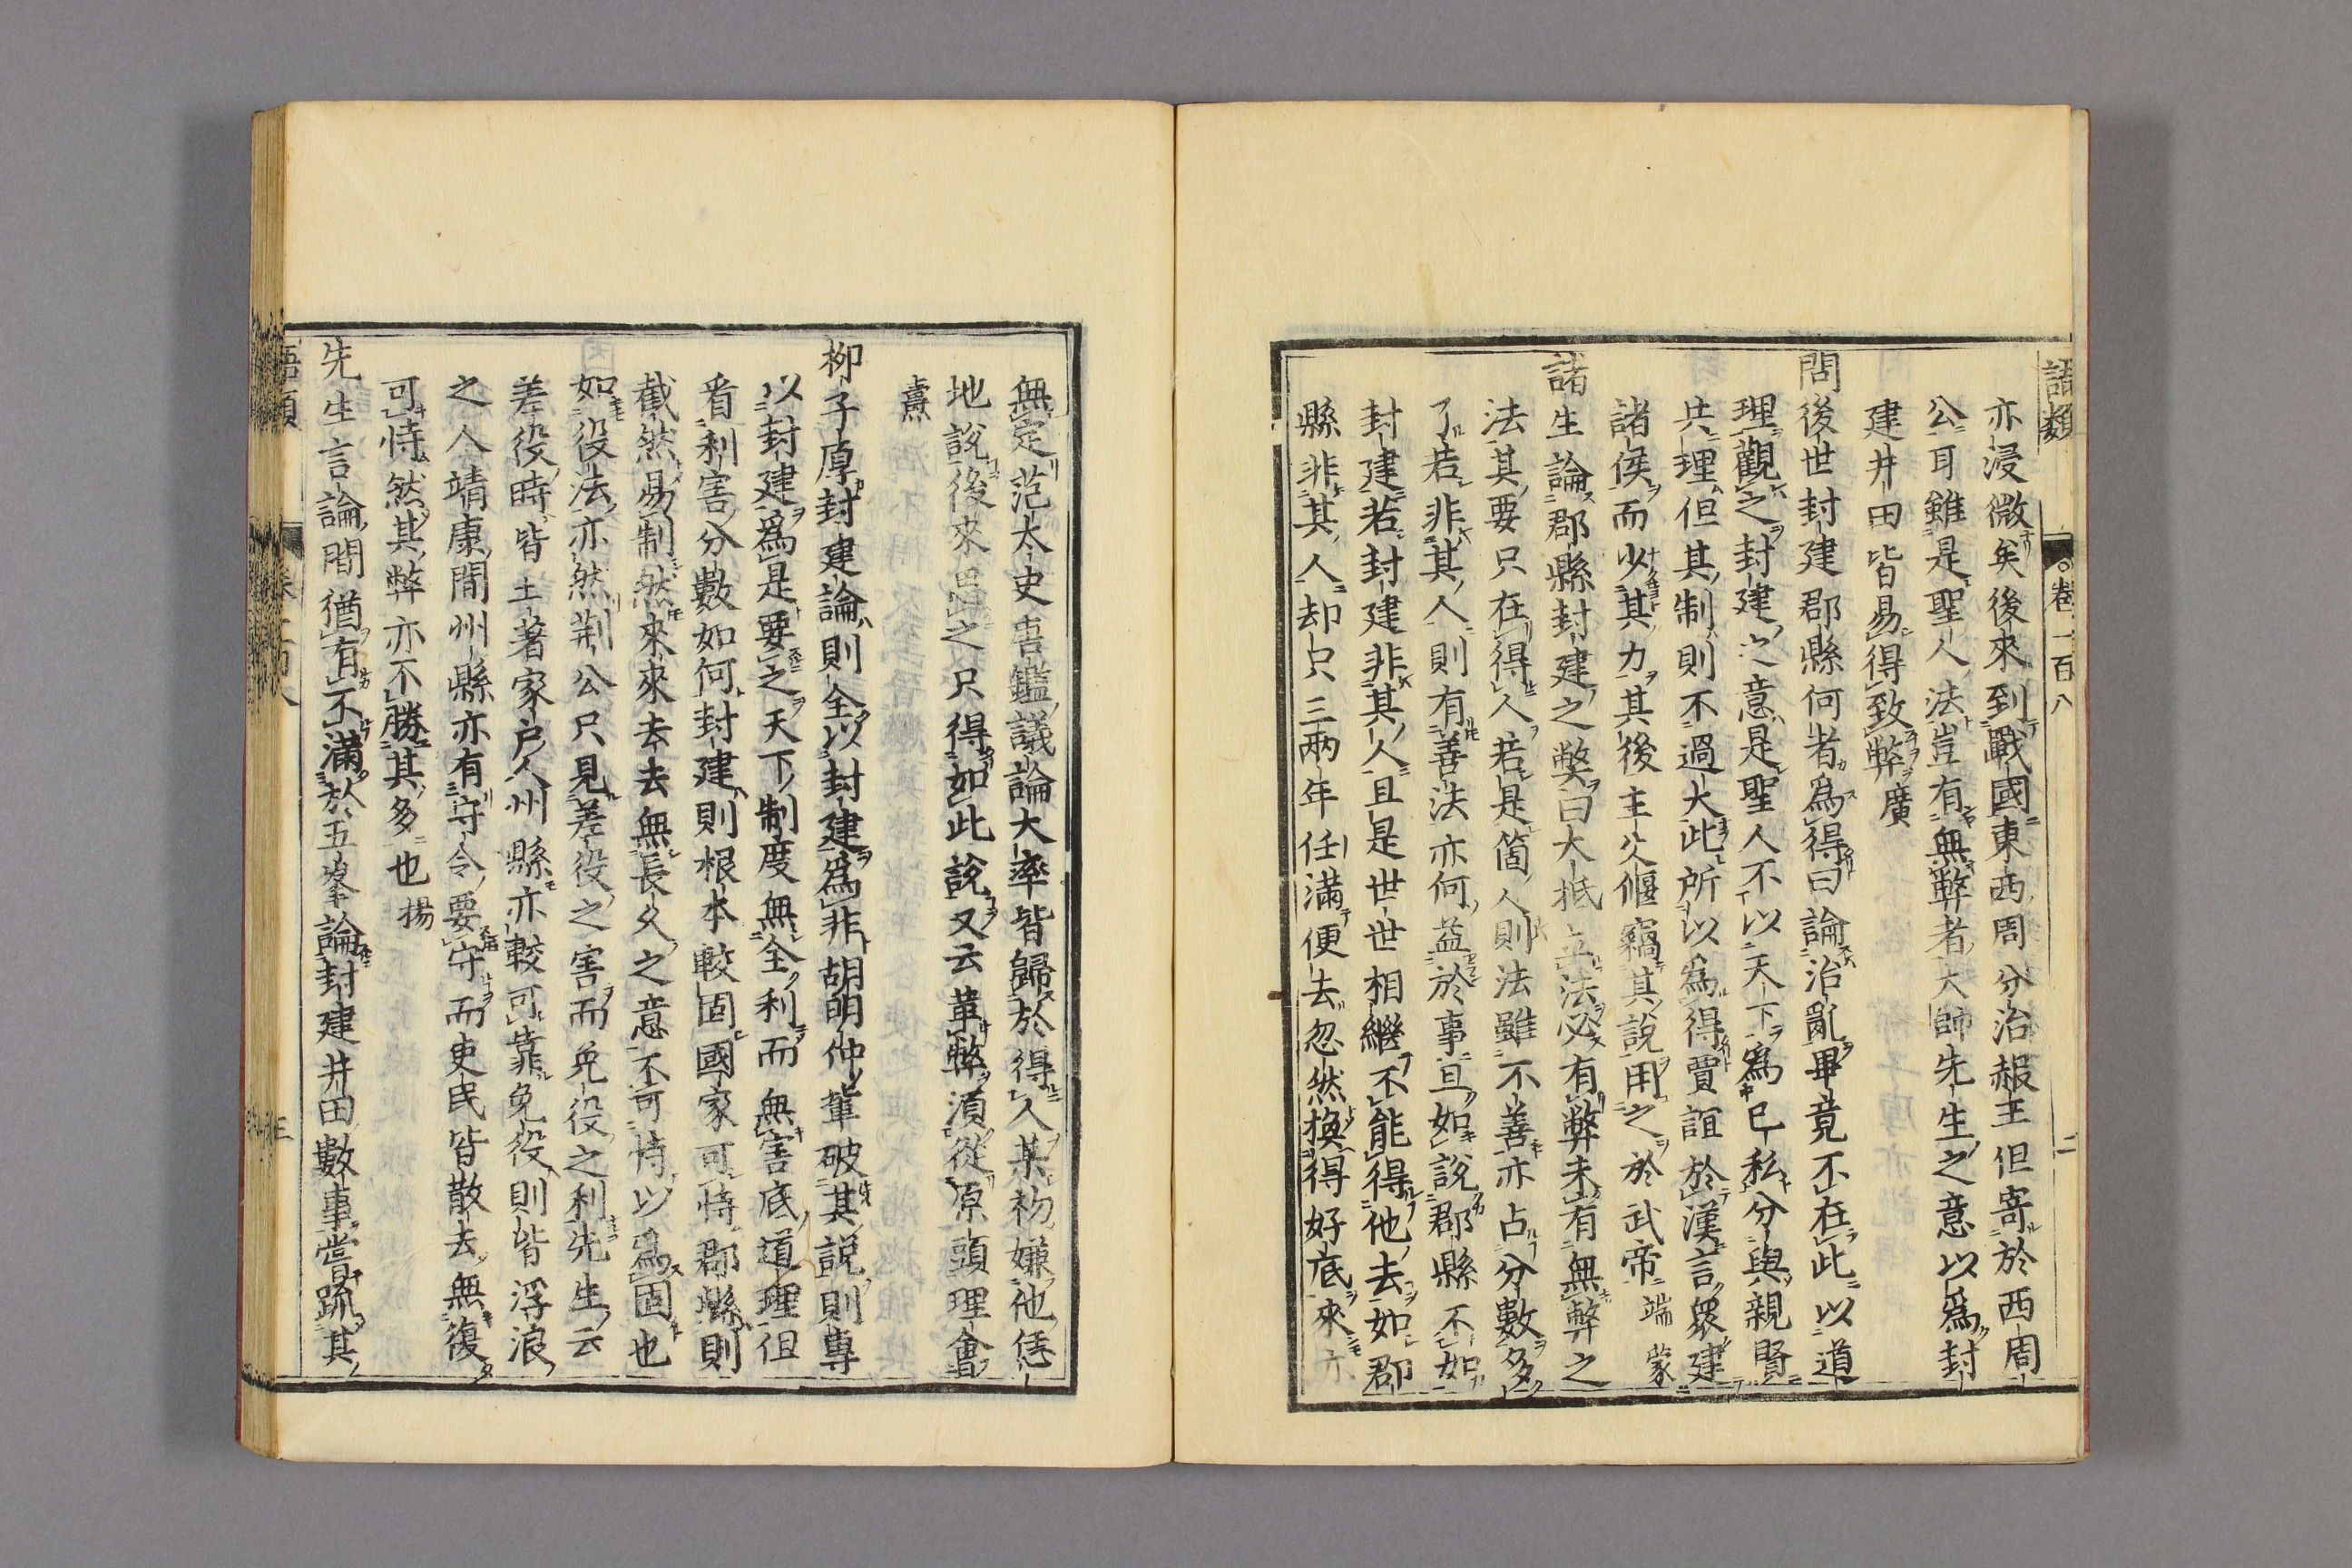 語類
卷一百八
二
亦浸微矣後來到戰國東西周分治赧王但寄於西周
公耳雖是聖人法豈有無弊者大師先生之意以爲封
建井田皆易得致弊廣
問後世封建郡縣何者爲得曰論治亂畢竟不在此以道
理觀之封建之意是聖人不以天下爲己私分與親賢
共理但其制則不過大此所以爲得賈誼於漢言衆建
諸侯而少其力其後主父偃竊其說用之於武帝端蒙
諸生論郡縣封建之弊曰大抵立法必有弊未有無弊之
法其要只在得人若是箇人則法雖不善亦占分數多
了若非其人則有善法亦何益於事且如說郡縣不如
封建若封建非其人且是世世相繼不能得他去如郡
縣非其人却只三兩年任滿便去忽然換得好底來亦
無定范太史唐鑑議論大率皆歸於得人某初嫌他恁
地說後來思之只得如此說又云革弊須從原頭理會
熹
柳子厚封建論則全以封建爲非胡明仲輩破其說則專
以封建爲是要之天下制度無全利而無害底道理但
看利害分數如何封建則根本較固國家可恃郡縣則
截然易制然來來去去無長久之意不可恃以爲固也
如役法亦然荆公只見差役之害而免役之利先生云
差役時皆土著家戶人州縣亦較可靠免役則皆浮浪
之人靖康間州縣亦有守令要守而吏民皆散去無復
可恃然其弊亦不勝其多也揚
先生言論間猶有不滿於五峯論封建井田數事嘗疏其
語類
三